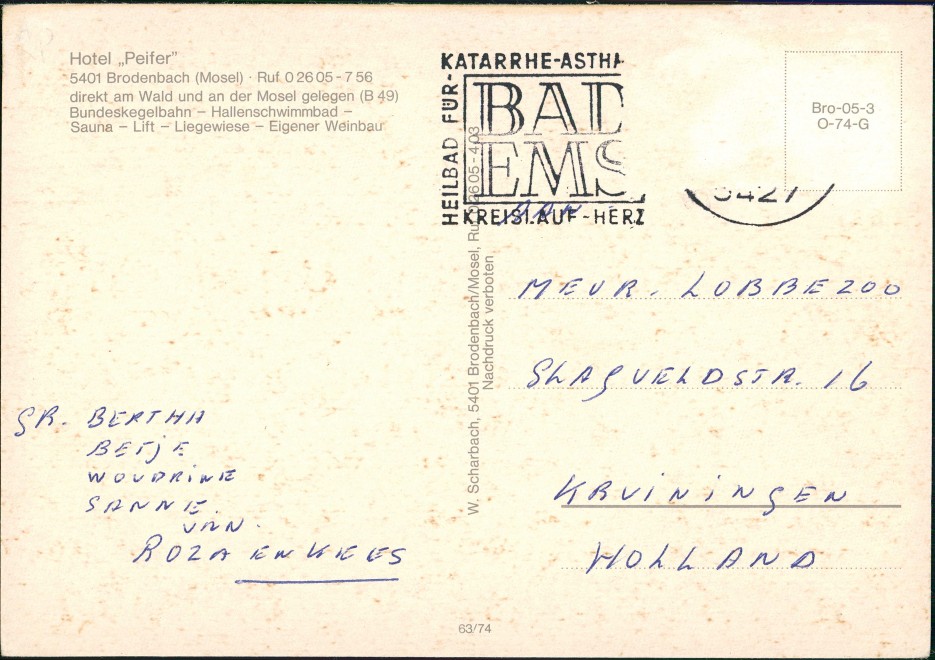 Hotel „Peifer"
5401 Brodenbach (Mosel) · Ruf 0 26 05 - 7 56
direkt am Wald und an der Mosel gelegen (B 49)
Bundeskegelbahn – Hallenschwimmbad –
Sauna – Lift – Liegewiese – Eigener Weinbau
KATARRHE-ASTHA
HEILBAD FÜR-
BAD
EMS
KREISLAUF-HERZ
5427
Bro-05-3
O-74-G
W. Scharbach, 5401 Brodenbach/Mosel, Ruf 0 26 05 - 4 03
Nachdruck verboten
AAN
MEVR. LOBBEZOO
SLAGVELDSTR. 16
KRUININGEN
HOLLAND
GR. BERTHA
BETJE
WOUDRINE
SANNE.
VAN.
ROZA EN KEES
63/74